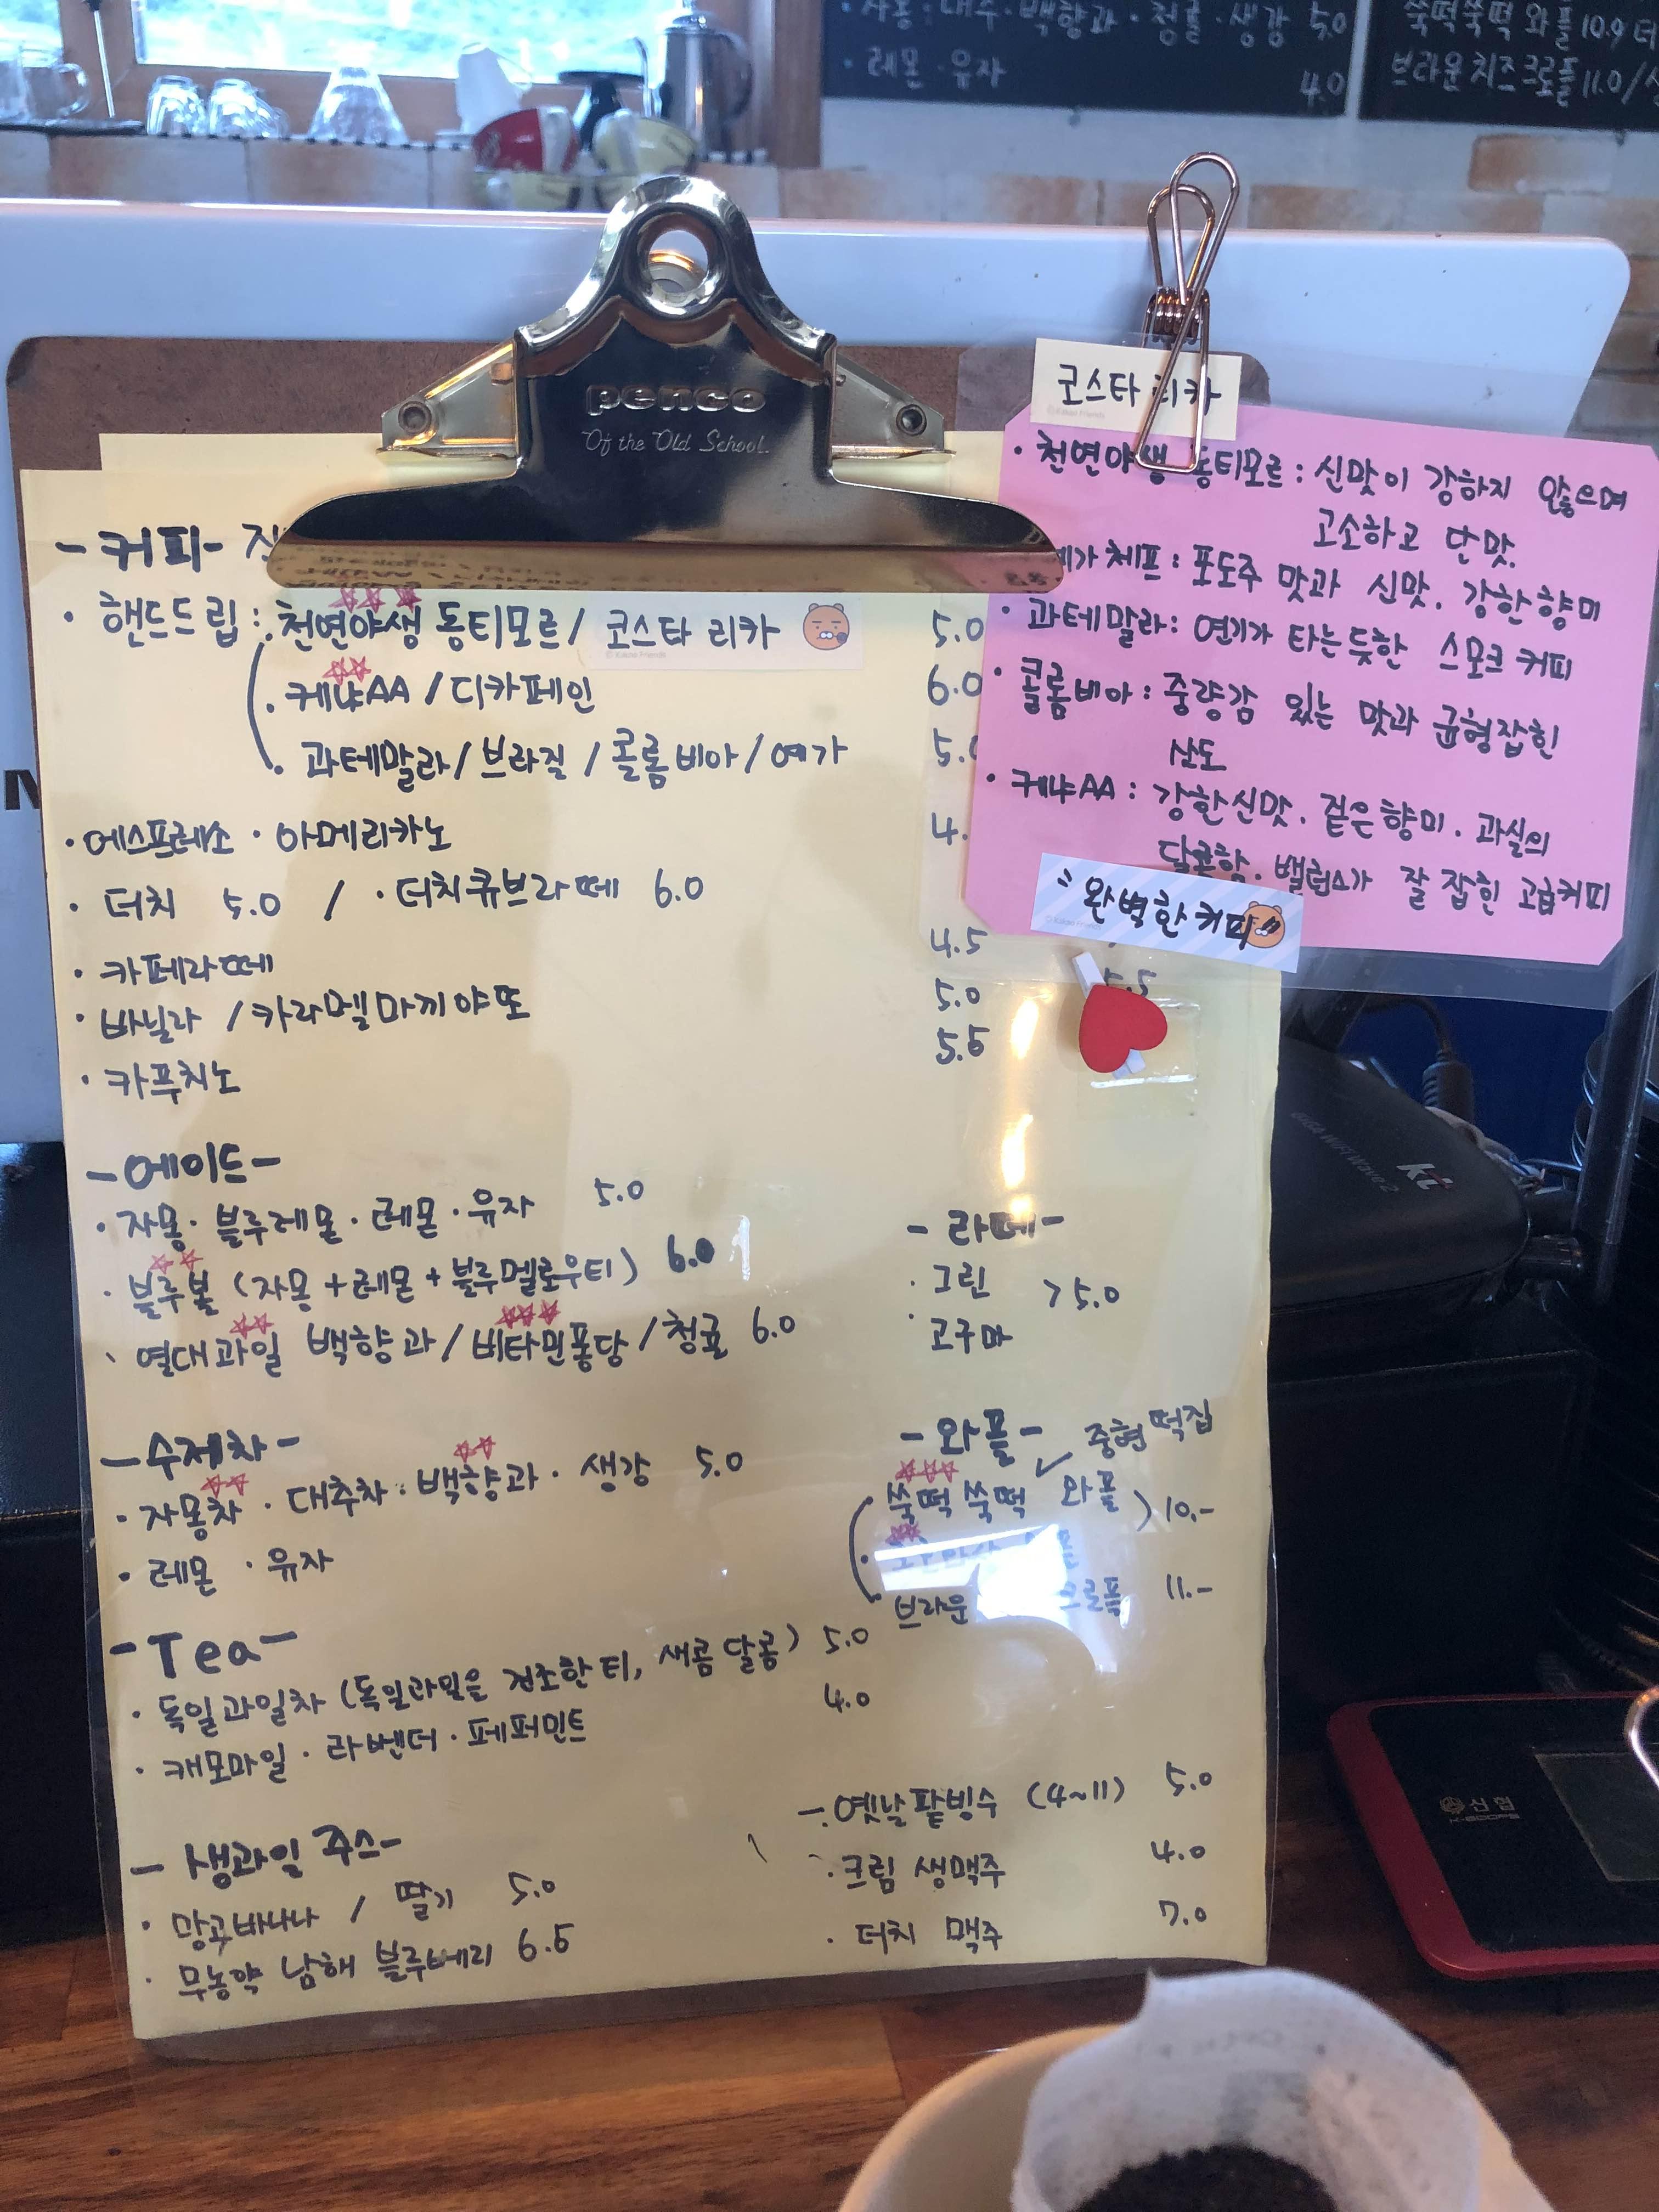 · 자몽 · 대추 · 백향과 · 청귤 · 생강 5.0
· 레몬 · 유자 4.0
쑥떡쑥떡 와플 10.9
브라운치즈크로플 11.0 /
penco
Of the Old School.
코스타 리카
· 천연야생 동티모르 : 신맛이 강하지 않으며
고소하고 단맛.
예가체프 : 포도주 맛과 신맛. 강한향미
· 과테말라 : 연기가 타는듯한 스모크 커피
· 콜롬비아 : 중량감 있는 맛과 균형잡힌
산도
· 케냐AA : 강한신맛. 짙은향미. 과실의
달콤함. 밸런스가 잘 잡힌 고급커피
"완벽한 커피"
- 커피 -
· 핸드드립 : · 천연야생 동티모르 / 코스타 리카 5.0
· 케냐AA / 디카페인 6.0
· 과테말라 / 브라질 / 콜롬비아 / 예가 5.0
· 에스프레소 · 아메리카노 4.
· 더치 5.0 / · 더치큐브라떼 6.0
· 카페라떼 4.5
· 바닐라 / 카라멜마끼야또 5.0 5.5
· 카푸치노 5.5
- 에이드 -
· 자몽 · 블루레몬 · 레몬 · 유자 5.0
· 블루볼 (자몽 + 레몬 + 블루멜로우티) 6.0
· 열대과일 백향과 / 비타민퐁당 / 청귤 6.0
- 라떼 -
· 그린 > 5.0
· 고구마
- 수제차 -
· 자몽차 · 대추차 · 백향과 · 생강 5.0
· 레몬 · 유자
- 와플 - ✓ 중현떡집
쑥떡쑥떡 와플 ) 10.-
브라운 크로플 11.-
- Tea -
· 독일과일차 (독일과일을 건조한 티, 새콤달콤) 5.0
· 캐모마일 · 라벤더 · 페퍼민트 4.0
- 생과일 주스 -
· 망고바나나 / 딸기 5.0
· 무농약 남해 블루베리 6.5
- 옛날팥빙수 (4~11) 5.0
· 크림 생맥주 4.0
· 더치 맥주 7.0
kt
GiGA WiFi Wave 2
신협